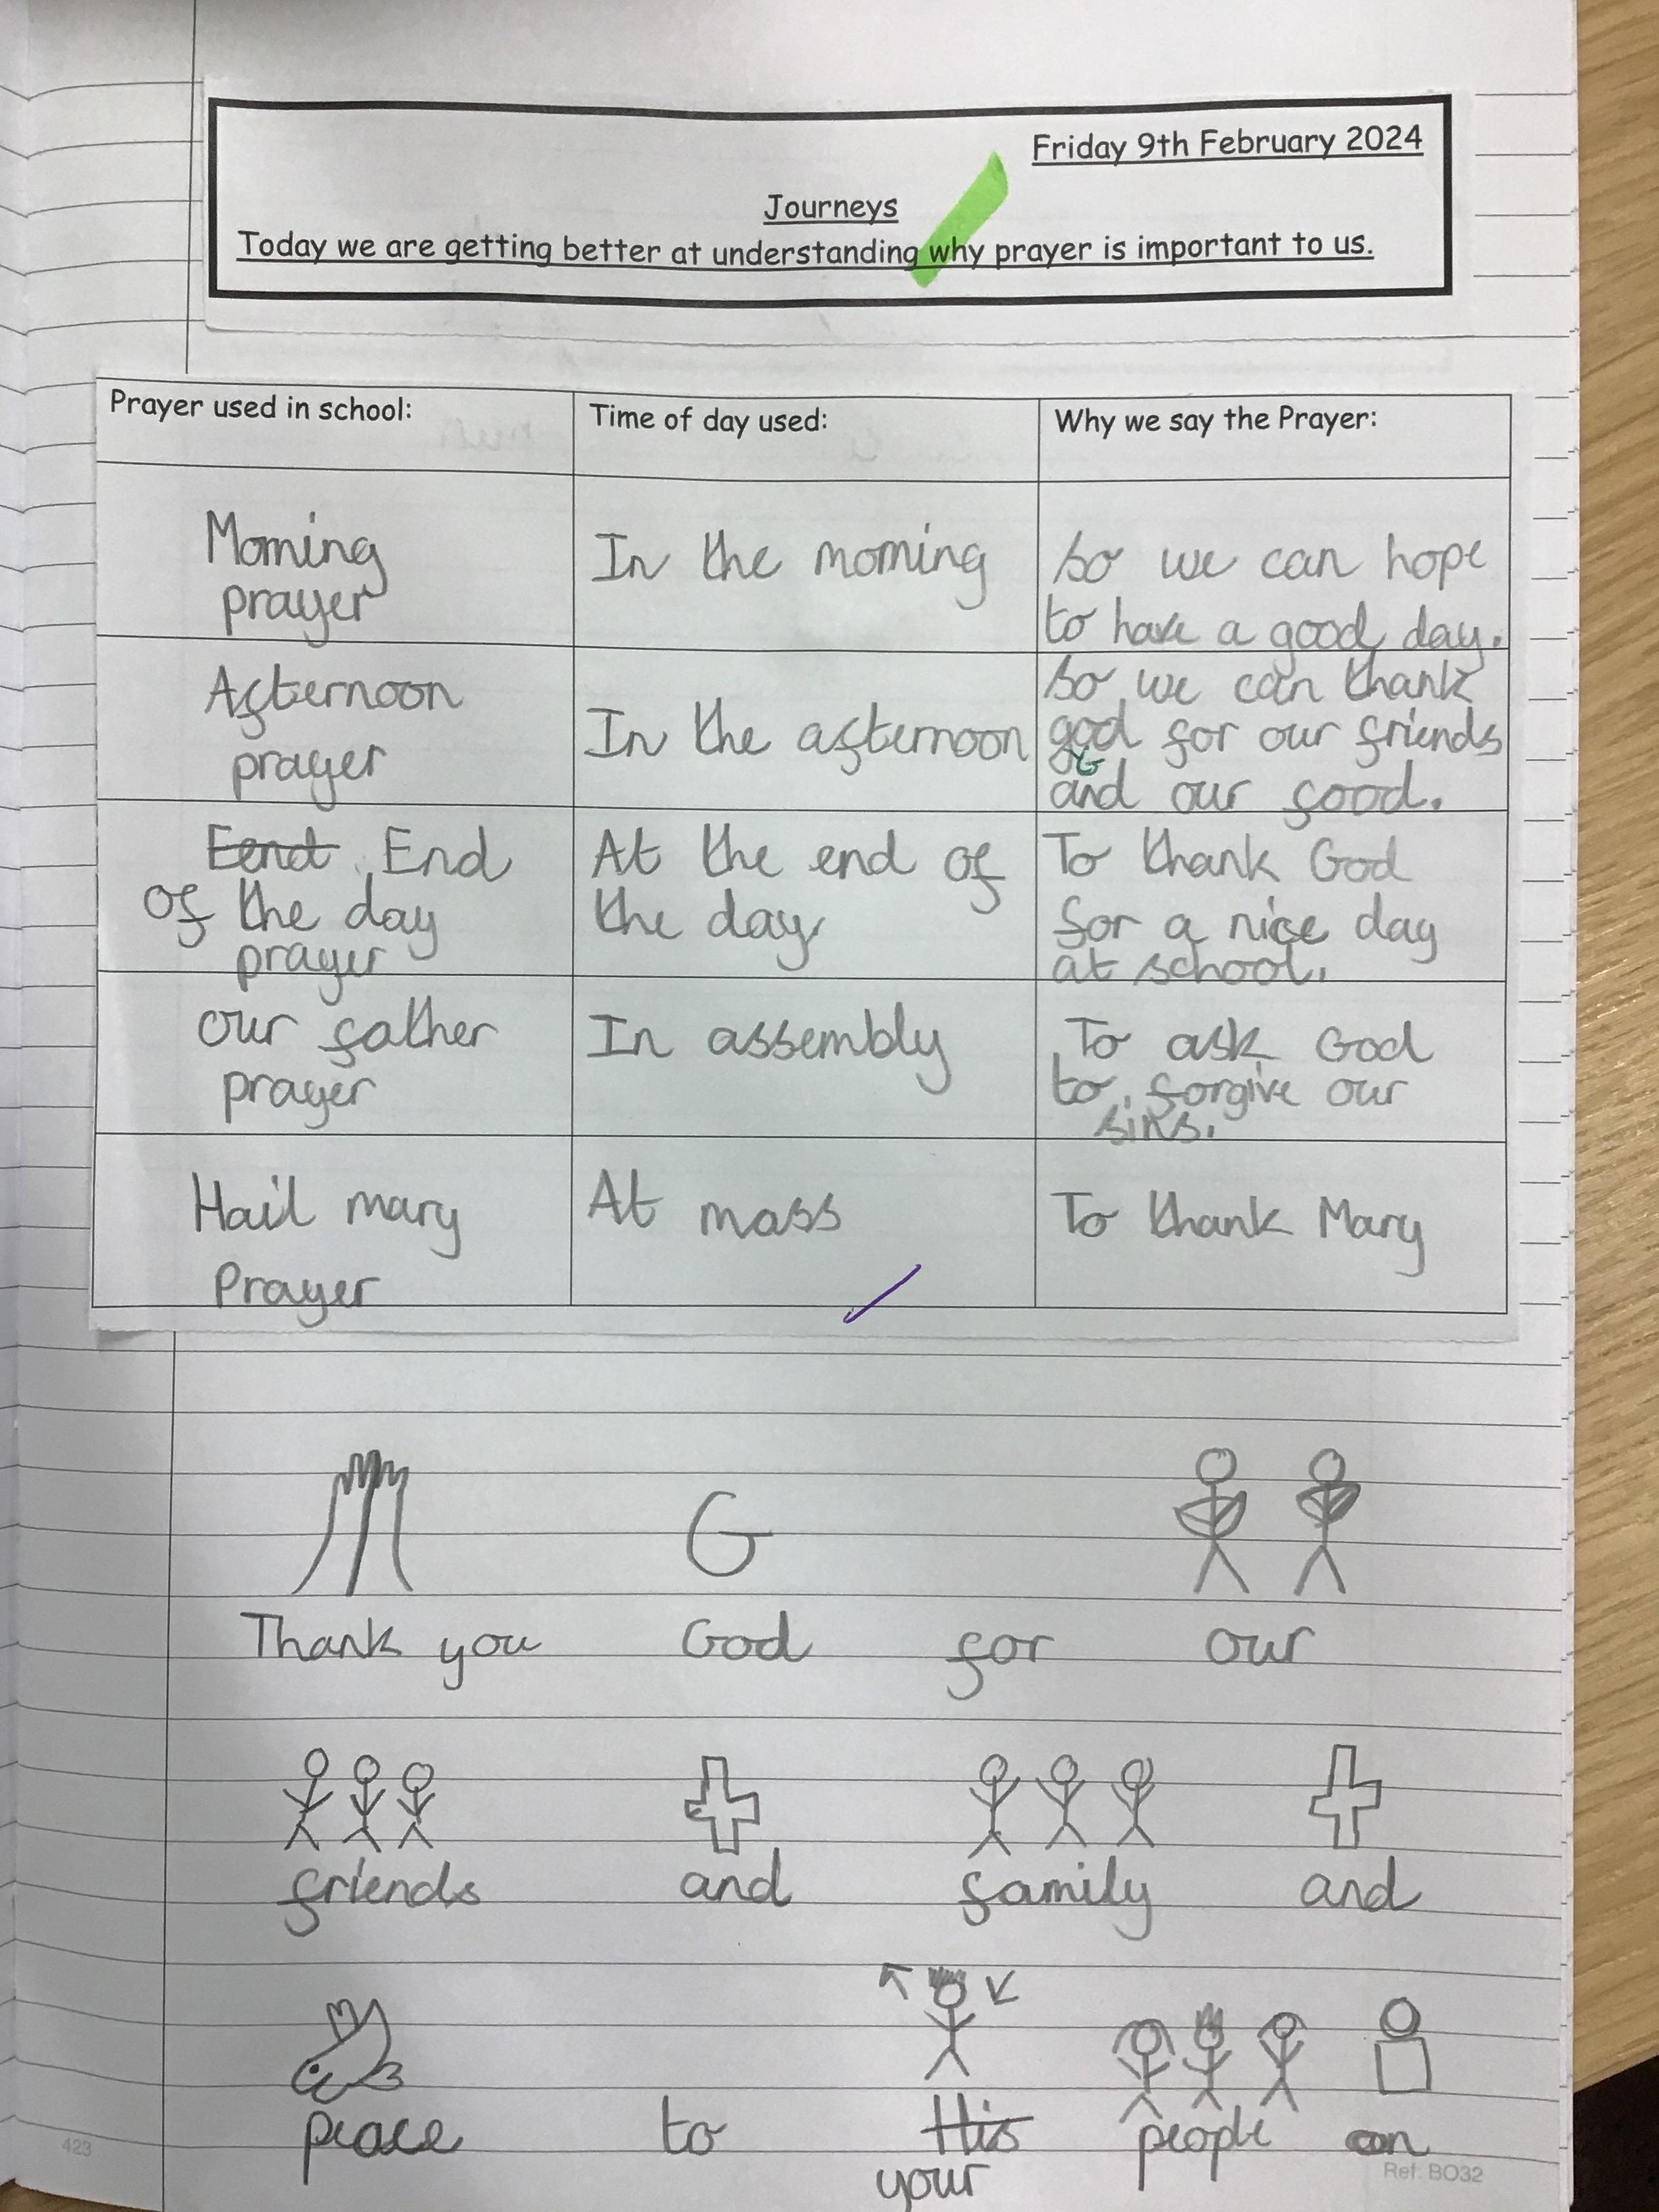 Friday 9th February 2024
Journeys
Today we are getting better at understanding why prayer is important to us.
Prayer used in school: Time of day used: Why we say the Prayer:
Morning
prayer
In the morning
so we can hope
to have a good day.
Afternoon
prayer
In the afternoon
so we can thank
god for our friends
G
and our food.
Eend End
of the day
prayer
At the end of
the day
To thank God
for a nice day
at school.
our father
prayer
In assembly
To ask God
to forgive our
sins.
Hail mary
Prayer
At mass
To thank Mary
G
Thank you God for our
friends and family and
peace to His people on
your
423
Ref: BO32